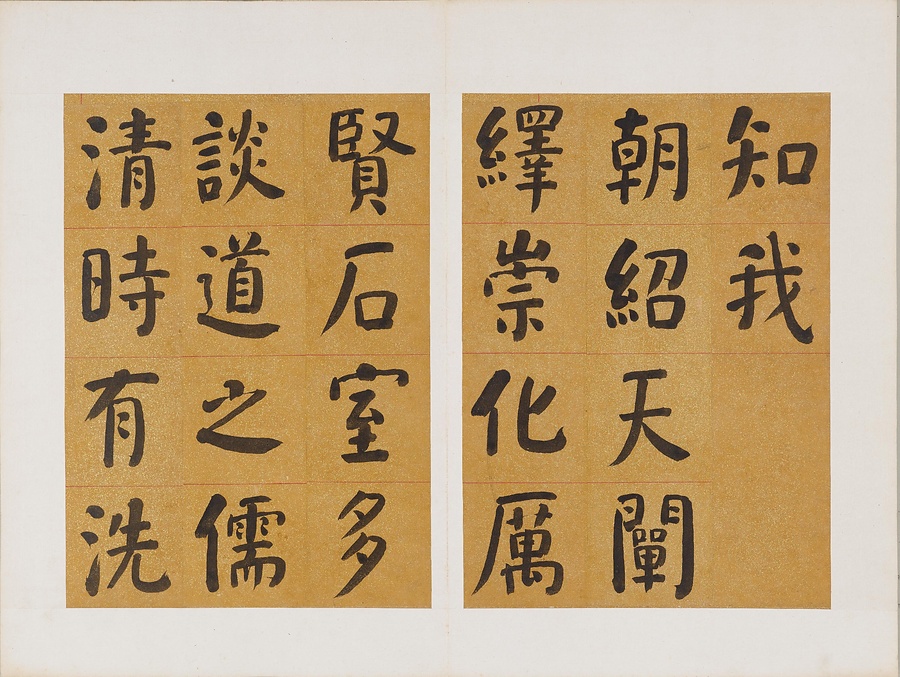 知我
朝紹天闡
繹崇化厲
賢石室多
談道之儒
清時有洗